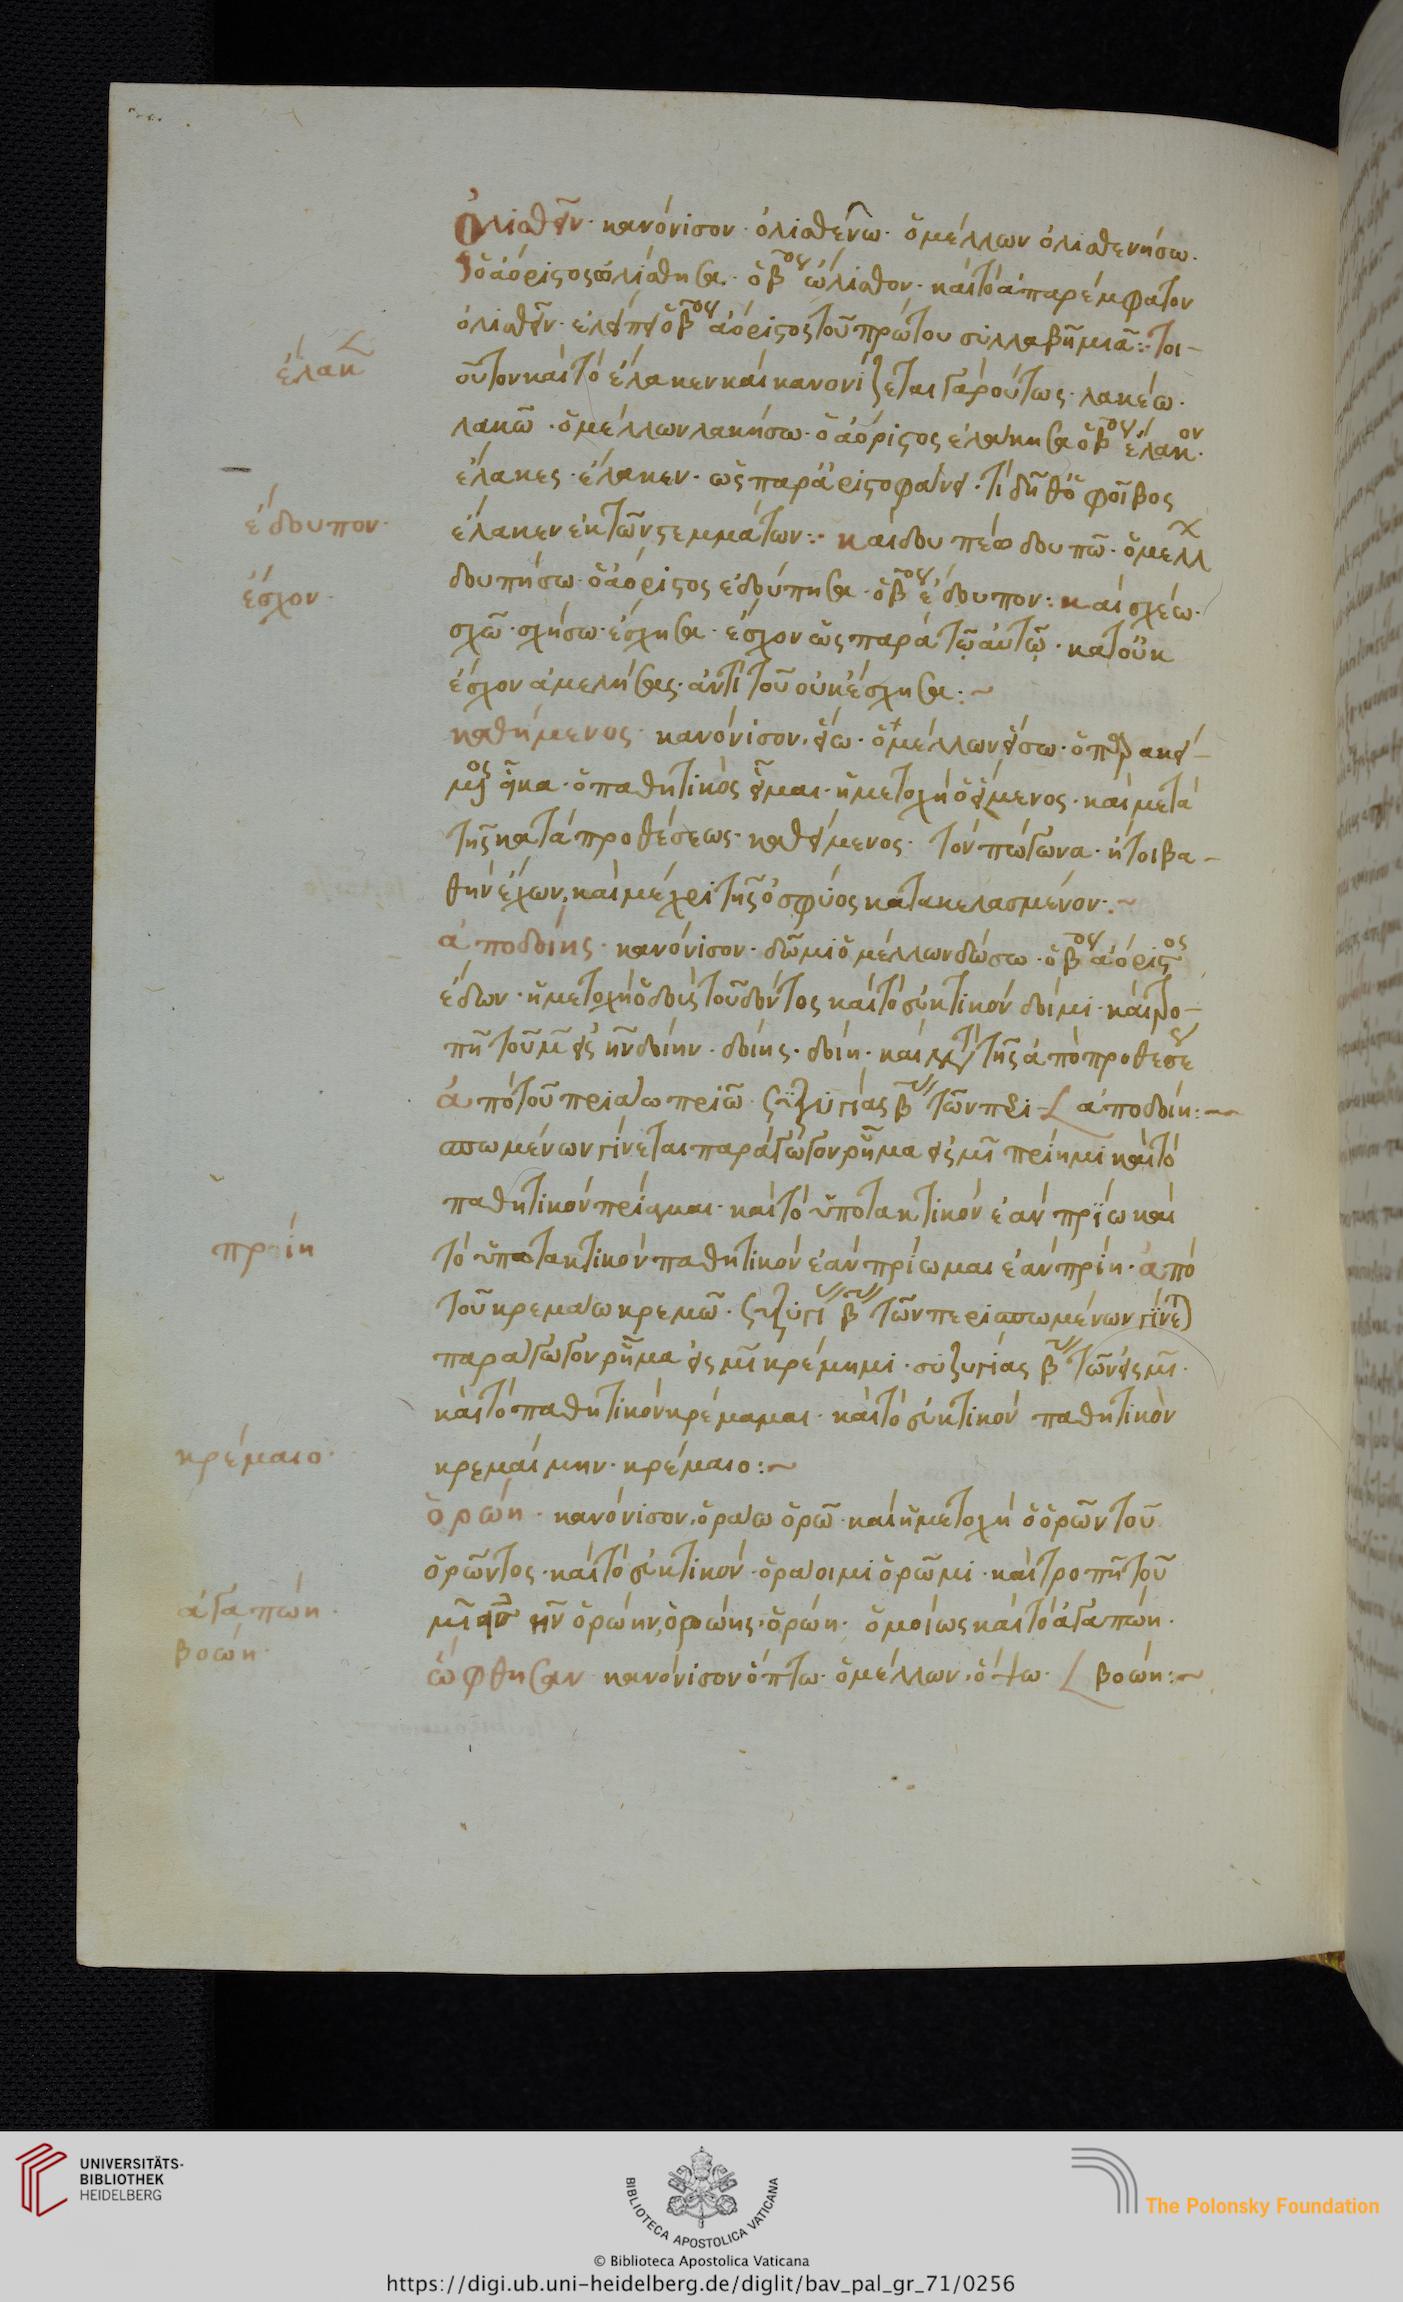 ὀλιαθεῖν· κανόνισον· ὀλιαθένω· ὁ μέλλων ὀλιαθενήσω·
ὁ ἀόριστος ὠλιάθησα· ὁ β̄ος ὠλίαθον· καὶ τὸ ἀπαρέμφατον
ὀλιαθεῖν· ὁ β̄ος ἀόριστος τοῦ πρώτου συλλαβῆ μιᾶ:· τοι-
ἐλακ
οῦτον καὶ τὸ ἔλακεν καὶ κανονίζεται γὰρ οὕτως· λακέω·
λακῶ· ὁ μέλλων λακήσω· ὁ ἀόριστος ἐλάκησα ὁ β̄ος ἔλακον·
ἔλακες· ἔλακεν· ὡς παρὰ ἀριστοφάνει· τί δῆθ' ὁ φοῖβος
ἔδουπον·
ἔλακεν ἐκ τῶν στεμμάτων:· καὶ δουπέω δουπῶ· ὁ μελλ
ἔσχον·
δουπήσω· ὁ ἀόριστος ἐδούπησα· ὁ β̄ος ἔδουπον: καὶ σχέω·
σχῶ· σχήσω· ἔσχησα· ἔσχον ὡς παρὰ τῶ αὐτῶ· κατοὐκ
ἔσχον ἀμελήσας· ἀντὶ τοῦ οὐκ ἔσχησα:~
καθήμενος· κανόνισον· ἕω· ὁ μέλλων ἥσω· ὁ παρακεί-
μενος ἧκα· ὁ παθητικὸς εἷμαι· ἡ μετοχὴ ὁ εἵμενος· καὶ μετὰ
τῆς κατὰ προθέσεως· καθειμένος· τὸν πώγωνα· ἤτοι βα-
θὴν ἔχων, καὶ μέχρι τῆς ὀσφύος κατακεχασμένον·~
ἀποδοίης· κανόνισον· δῶμι ὁ μέλλων δώσω· ὁ β̄ος ἀόριστος
ἔδων· ἡ μετοχὴ ὁ δοὺς τοῦ δόντος καὶ τὸ εὐκτικὸν δοῖμι· καὶ τρο-
πῆ τοῦ μῖ εἰς ην δοίην· δοίης· δοίη· καὶ μετὰ τῆς ἀπὸ προθέσε
ἀπὸ τοῦ πριάω πριῶ· συζυγίας β̄ας τῶν περι- ἀποδοίη:~
σπωμένων γίνεται παράγωγον ῥῆμα εἰς μῖ πρίημι καὶ τὸ
παθητικὸν πρίαμαι· καὶ τὸ ὑποτακτικὸν ἐὰν πρίω καὶ
πρίη
τὸ ὑποτακτικὸν παθητικὸν ἐὰν πρίωμαι ἐὰν πρίη· ἀπὸ
τοῦ κρεμάω κρεμῶ· συζυγί β̄ας τῶν περισπωμένων γίνετ
παράγωγον ῥῆμα εἰς μῖ κρέμημι· συζυγίας β̄ας τῶν εἰς μῖ·
καὶ τὸ παθητικὸν κρέμαμαι· καὶ τὸ εὐκτικὸν παθητικὸν
κρέμαιο·
κρεμαίμην· κρέμαιο:~
ὁρώη· κανόνισον· ὁράω ὁρῶ· καὶ ἡ μετοχὴ ὁ ὁρῶν τοῦ
ὁρῶντος· καὶ τὸ εὐκτικὸν· ὁράοιμι ὁρῶμι· καὶ τροπῆ τοῦ
ἀγαπώη·
μῖ ην ὁρώην, ὁρώης· ὁρώη· ὁμοίως καὶ τὸ ἀγαπώη·
βοώη·
ὤφθησαν κανόνισον ὄπτω· ὁ μέλλων· ὄψω· βοώη:~
UNIVERSITÄTS-
BIBLIOTHEK
HEIDELBERG
BIBLIOTECA APOSTOLICA VATICANA
The Polonsky Foundation
© Biblioteca Apostolica Vaticana
https://digi.ub.uni-heidelberg.de/diglit/bav_pal_gr_71/0256